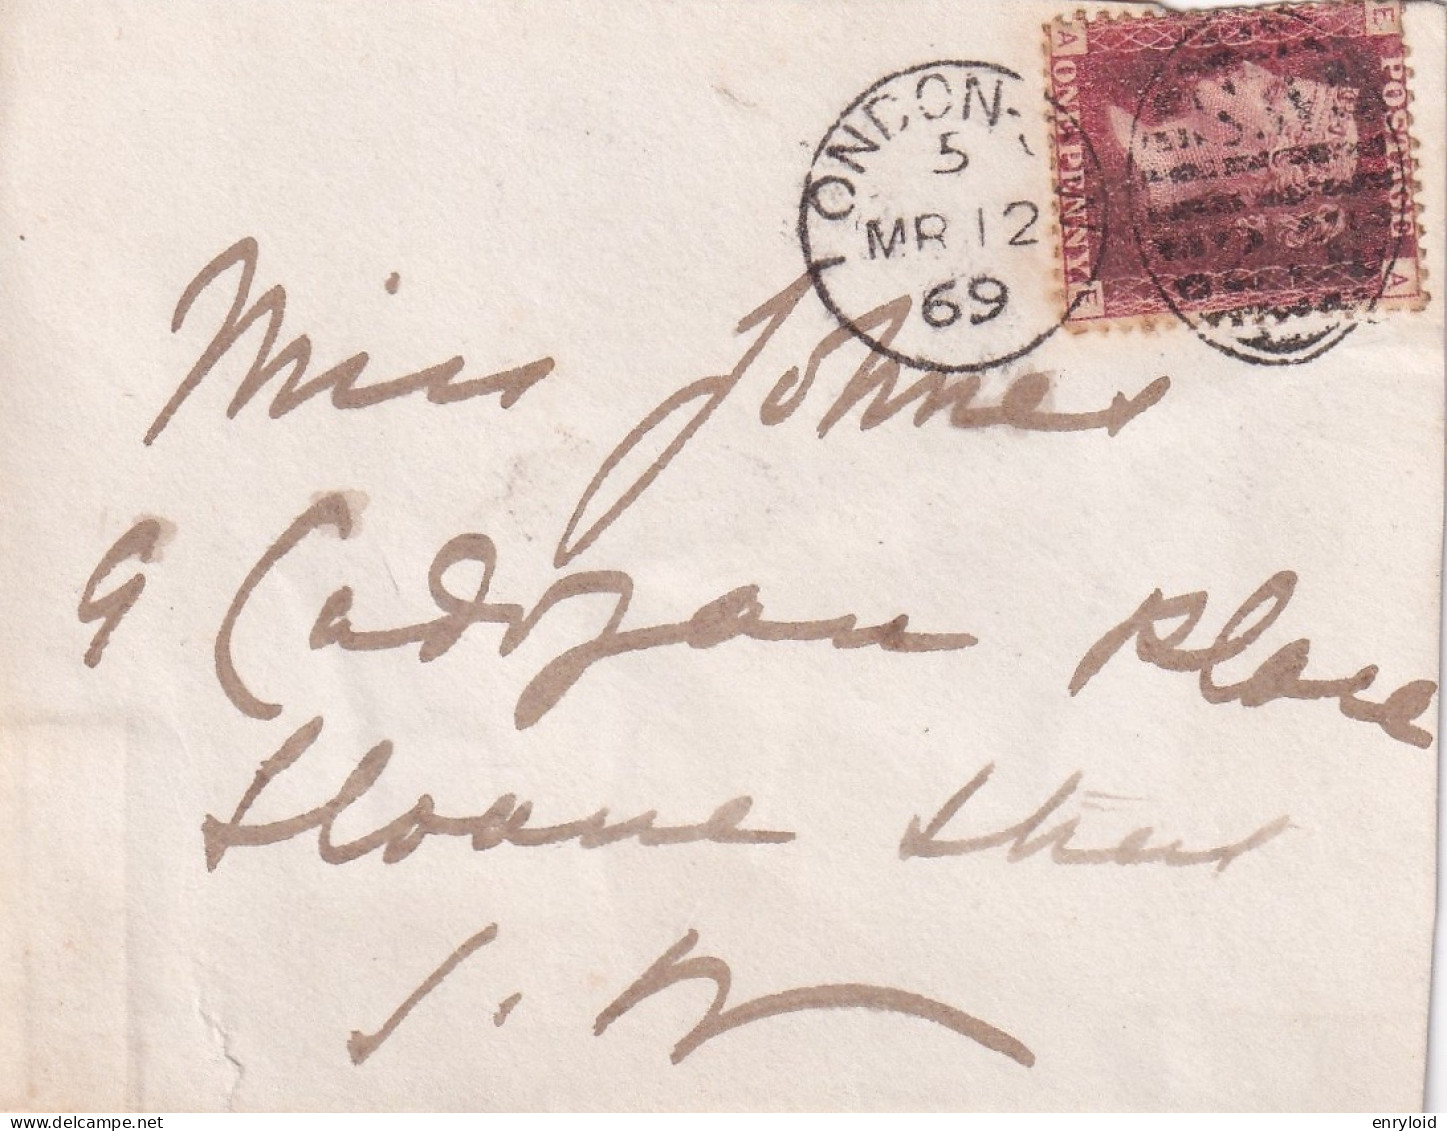 LONDON
5
MR 12
69
A E
POSTAGE
ONE PENNY
E A
Miss Johnes
9 Cadogan Place
Sloane Street
S. W
delcampe.net
enryloid